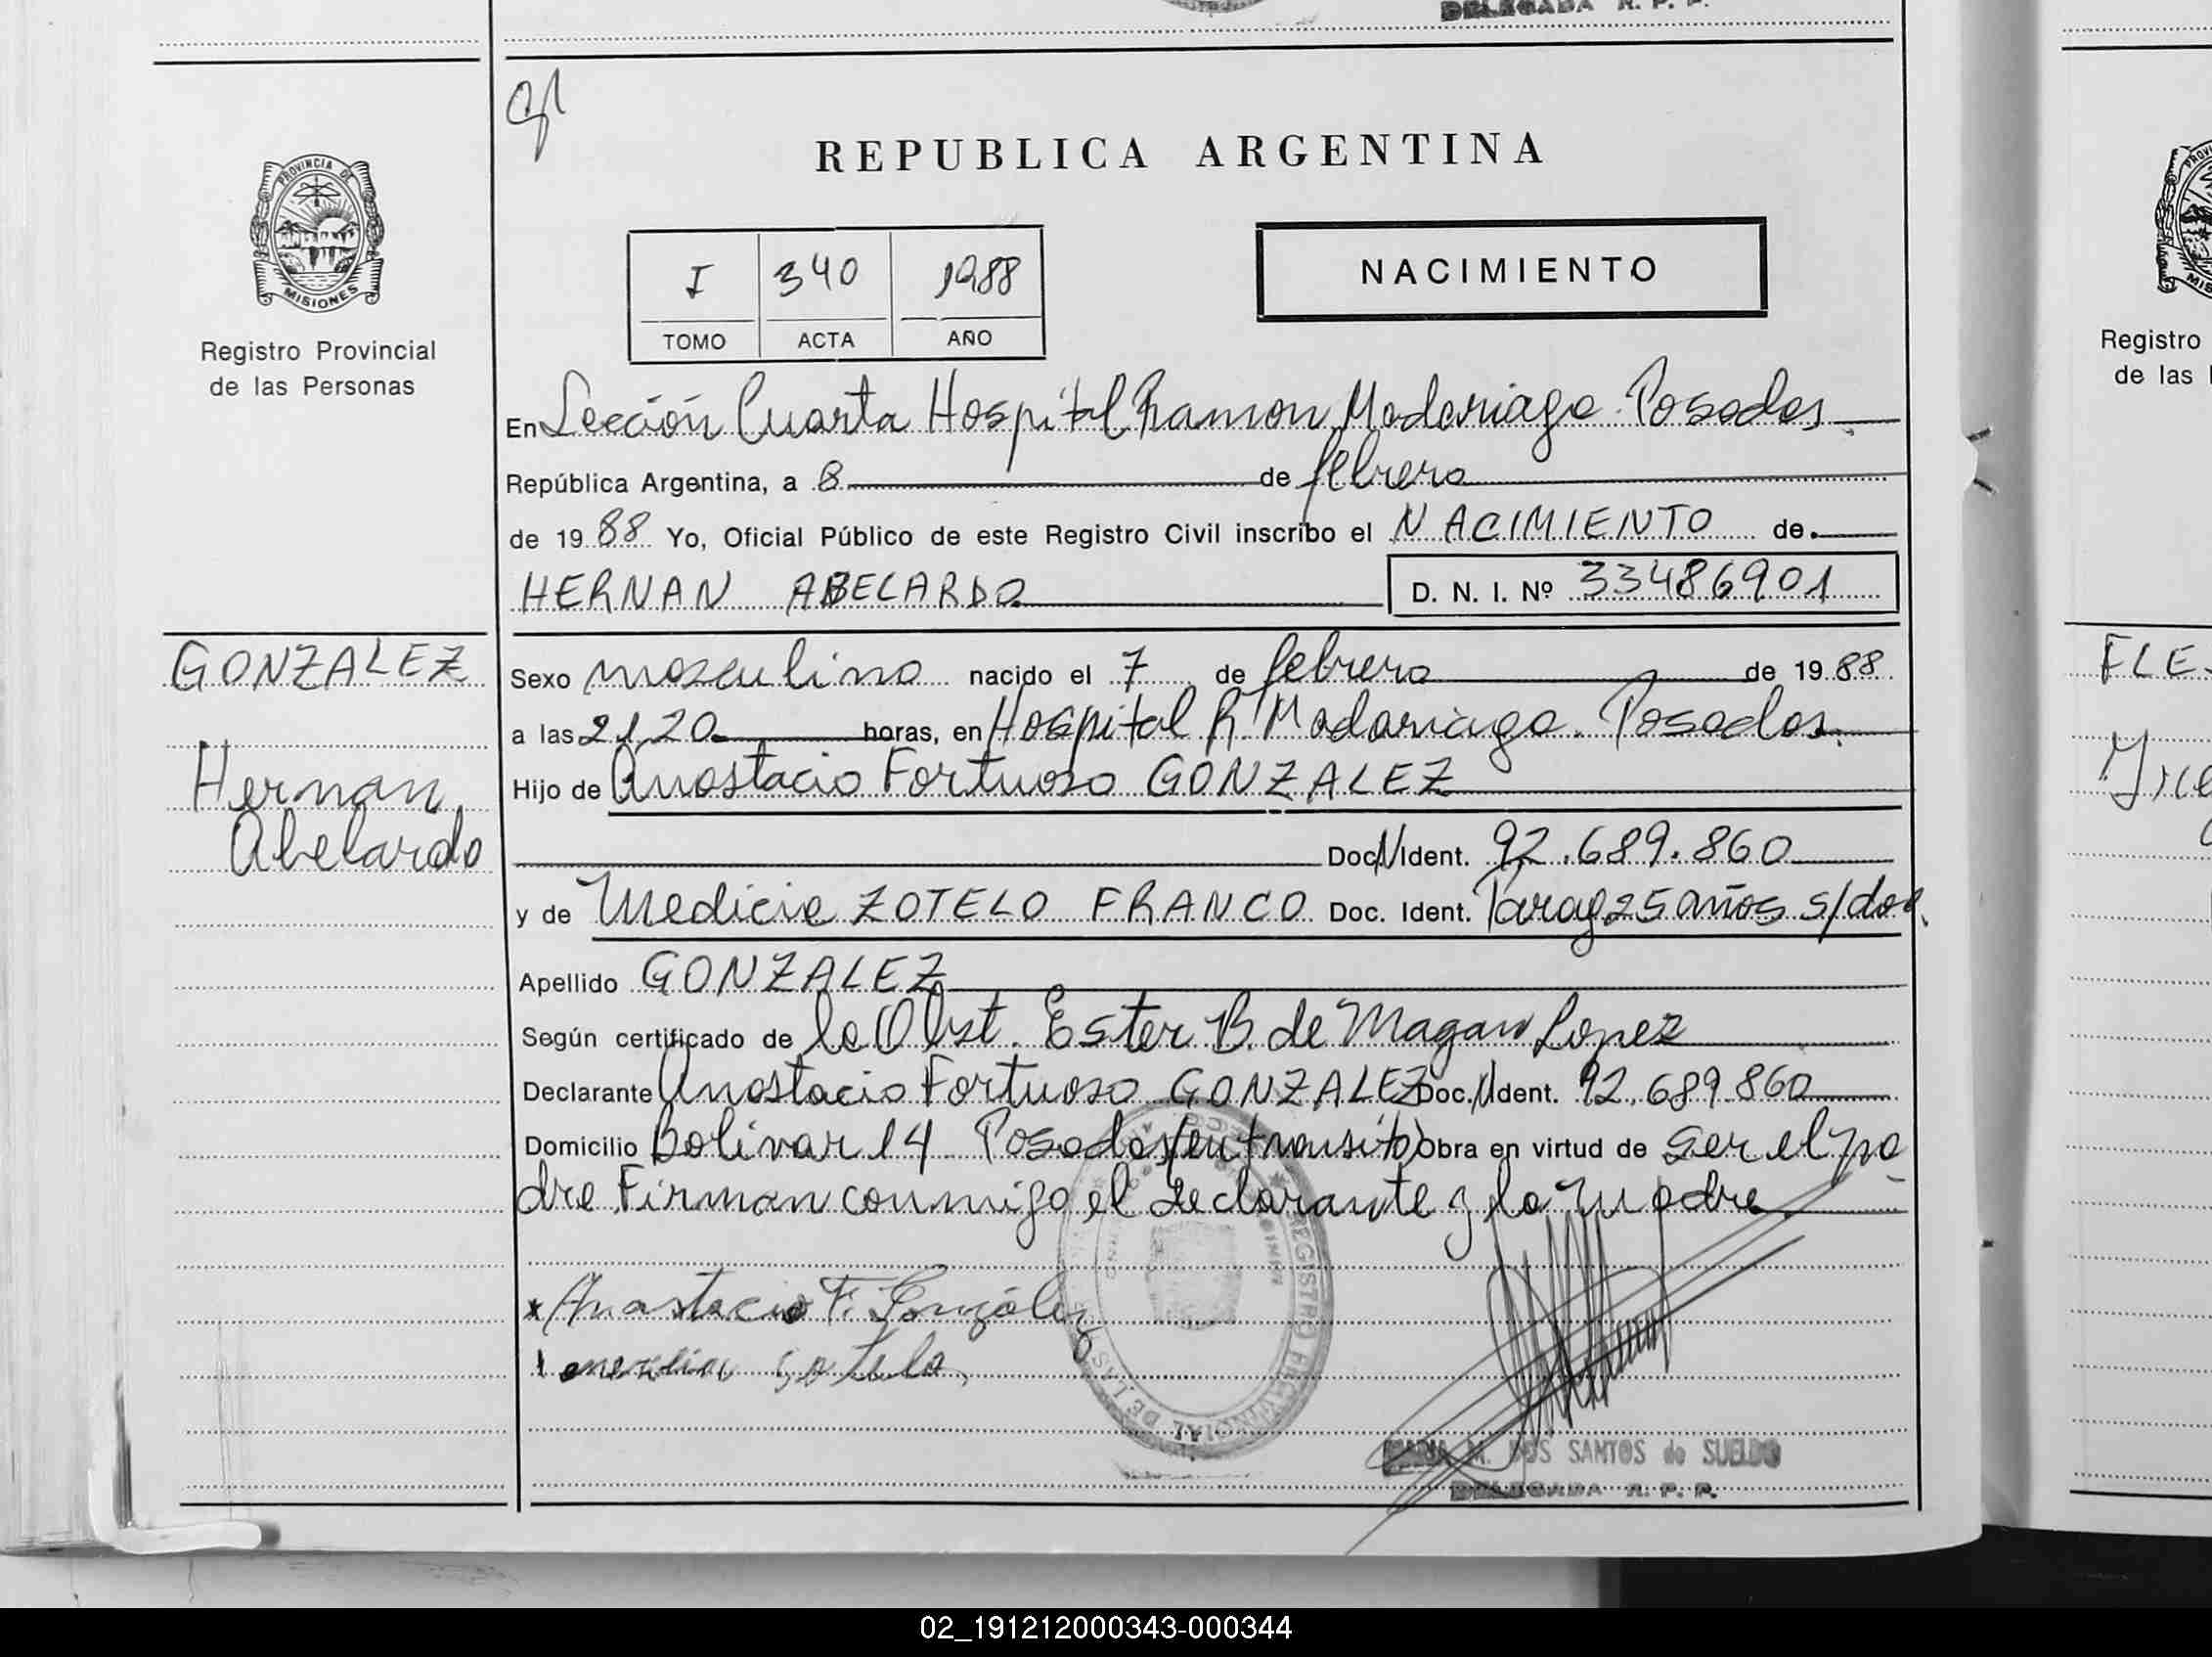 DELEGADA R. P. P.
REPUBLICA ARGENTINA
PROVINCIA DE
MISIONES
Registro Provincial
de las Personas
I 340 1988
TOMO ACTA AÑO
NACIMIENTO
En Sección Cuarta Hospital Ramon Madariaga. Posadas.
República Argentina, a 8 de febrero
de 1988 Yo, Oficial Público de este Registro Civil inscribo el NACIMIENTO de
HERNAN ABELARDO D. N. I. Nº 33486901
GONZALEZ
Hernan
Abelardo
Sexo masculino nacido el 7 de febrero de 1988
a las 21,20 horas, en Hospital R. Madariaga. Posadas.
Hijo de Anastacio Fortuoso GONZALEZ
Doc.N Ident. 92.689.860
y de Medicie ZOTELO FRANCO Doc. Ident. Parag 25 años s/doc.
Apellido GONZALEZ
Según certificado de la Obst. Ester B. de Magan Lopez
Declarante Anastacio Fortuoso GONZALEZ Doc.N Ident. 92.689.860
Domicilio Bolivar 14 Posadas (en transito) Obra en virtud de ser el pa
dre. Firman conmigo el declarante y la madre
x Anastacio F. González
sotelo
REGISTRO PROVINCIAL DE LAS
MARIA M. DOS SANTOS de SUELDO
DELEGADA R. P. P.
Registro
de las
FLE
02_191212000343-000344